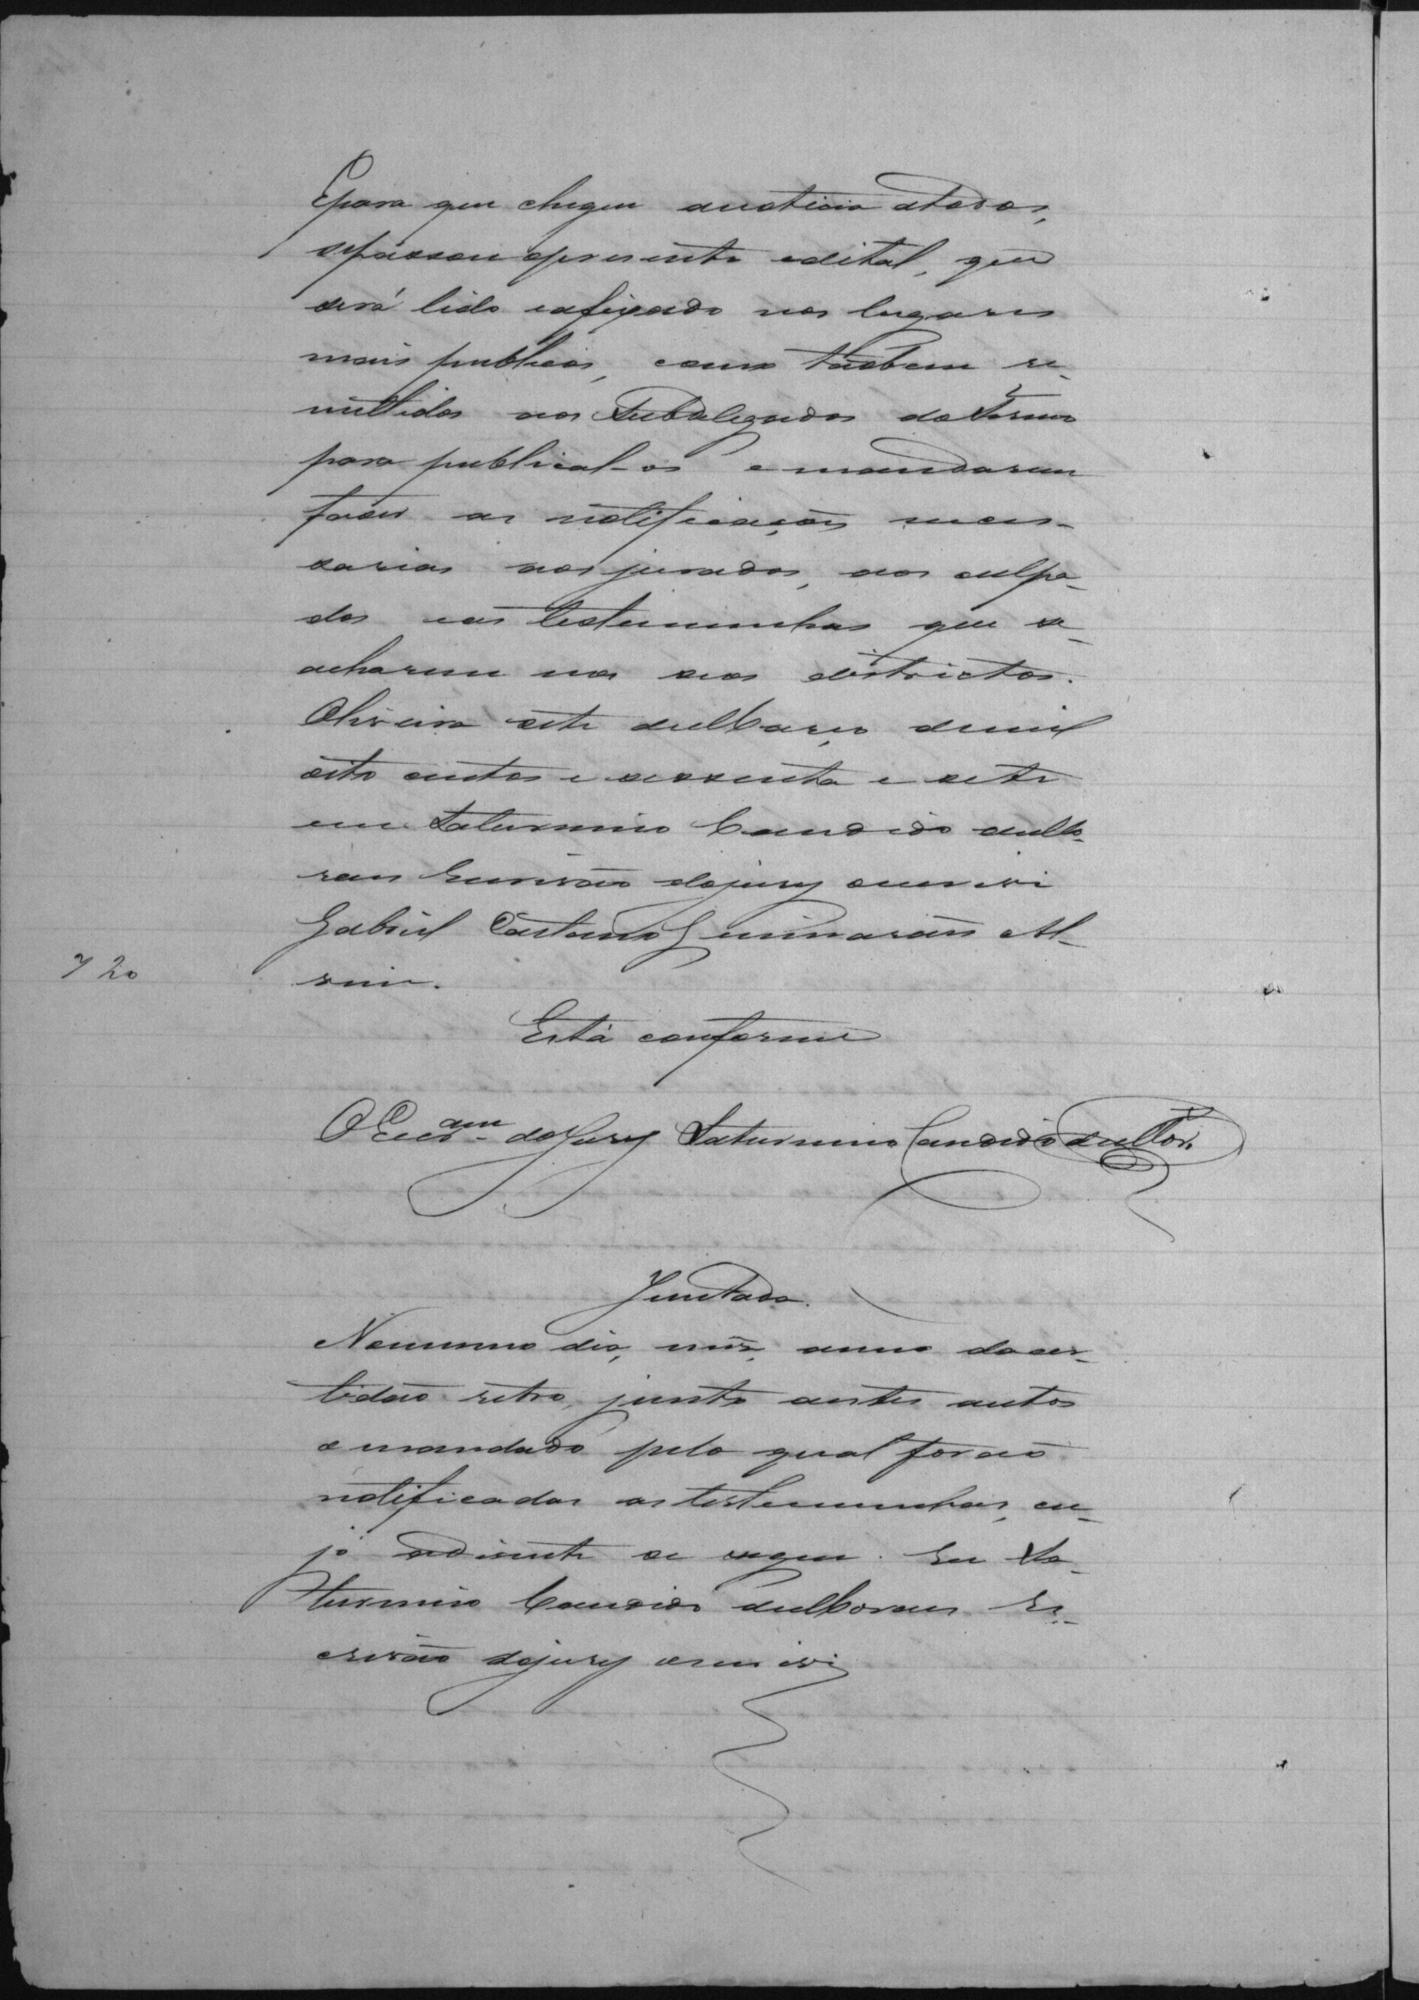 E para que chegue anoticia atodos,
sepassou opresente edital, que
será lido eafixado nos lugares
mais publicos, como tãobem re-
mettidos aos Subdelegados do Termo
para publical-os e mandarem
fazer as notificações neces-
sarias aos jurados, aos culpa-
dos eás testemunhas que se
acharem nos seos districtos.
Oliveira sete deMarço demil
oito centos e sessenta e sete
eu Saturnino Candido deMo-
raes Escrivão dojury escrevi
Gabriel Caetano Guimarães Al-
vim.
7 20
Está conforme
O Escram do Jury Saturnino Candido deMor.
Juntada.
Nomesmo dia, mez, anno dacer-
tidão retro, junto aestes autos
o mandado pelo qual forão
notificadas as testemunhas, cu-
jo adiante se segue. Eu Sa-
turnino Candido deMoraes Es-
crivão dojury escrevi